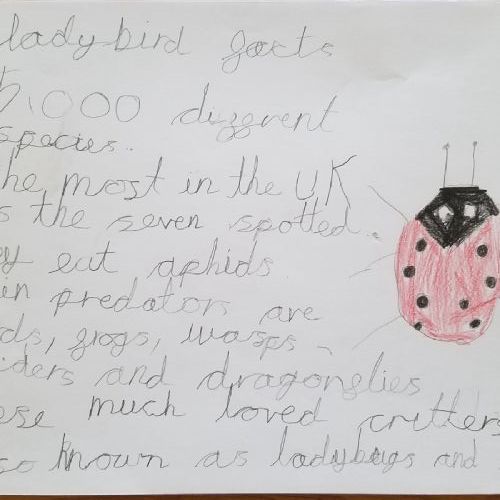 ladybird facts
5,000 diffrent
species.
he most in the UK
s the seven spotted.
ey eat aphids
in predators are
ds, frogs, wasps
iders and dragonflies
ese much loved critters
so known as ladybugs and